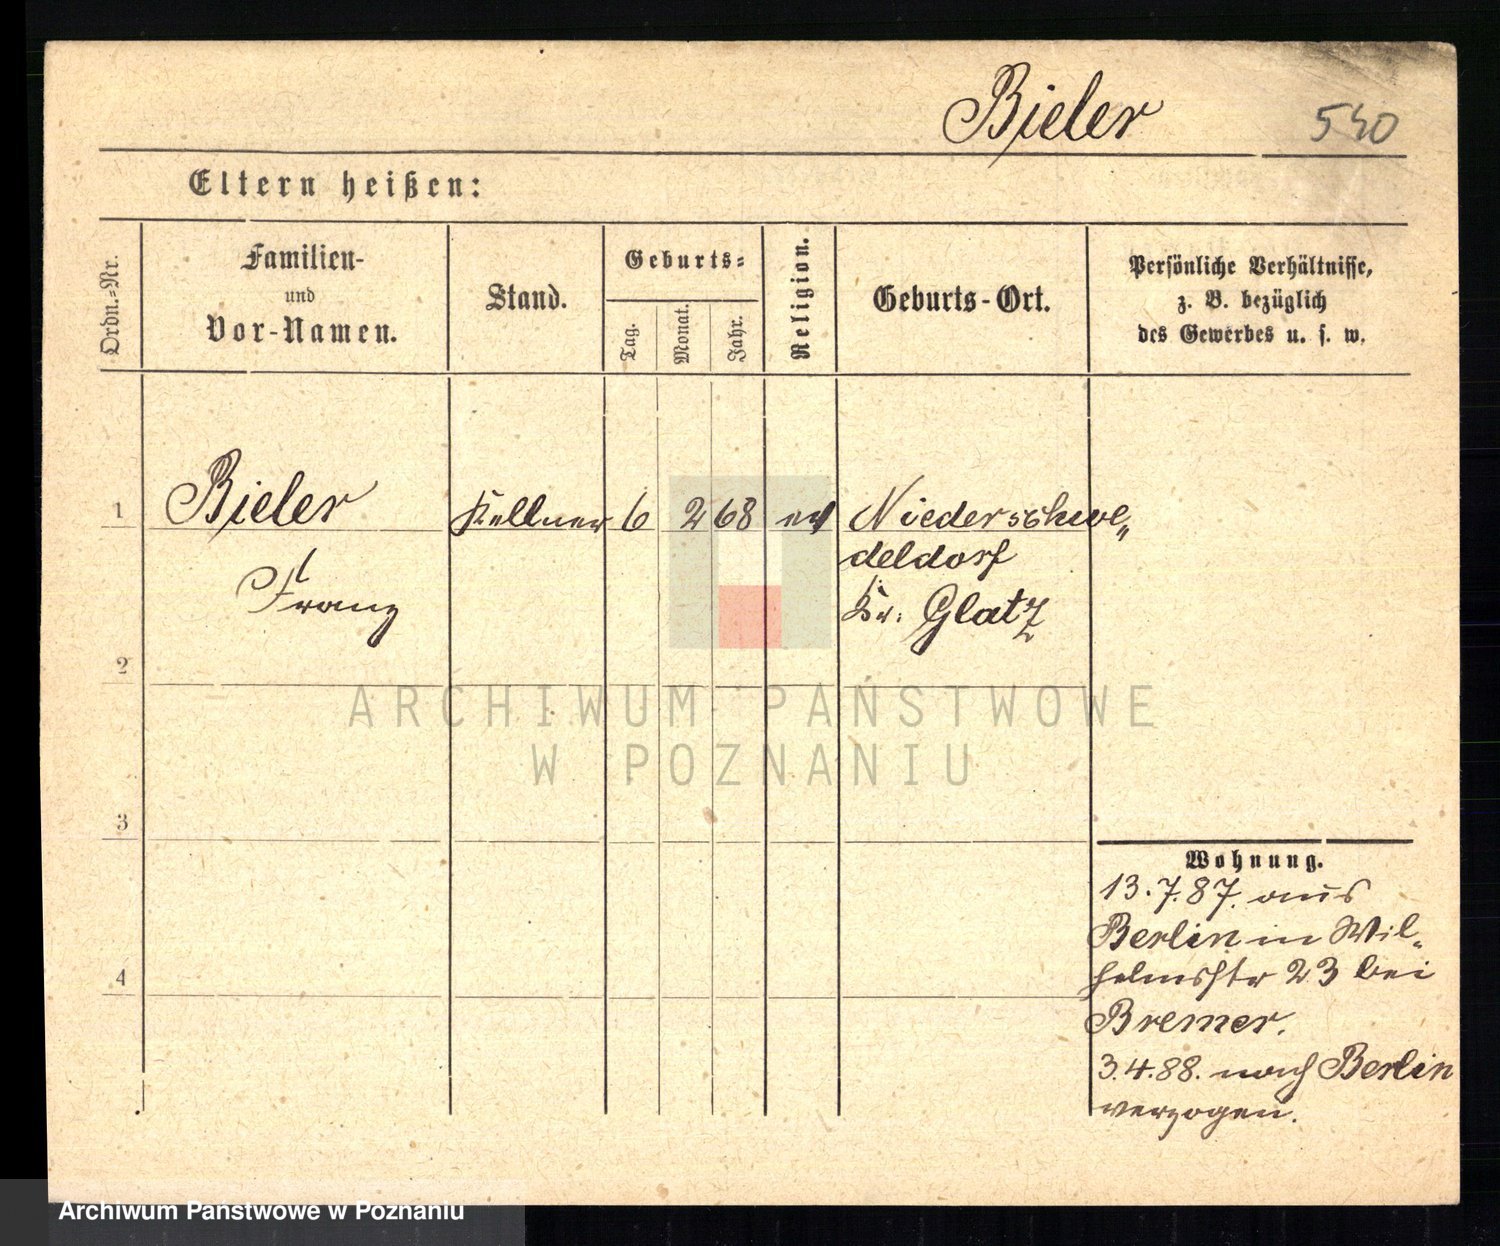 Bieler 540
Eltern heißen:
Ordn.-Nr.
Familien-
und
Vor-Namen.
Stand.
Geburts-
Tag.
Monat.
Jahr.
Religion.
Geburts-Ort.
Persönliche Verhältnisse,
z. B. bezüglich
des Gewerbes u. s. w.
1 Bieler Kellner 6 2 68 ev Niederschwe„
deldorf
Franz Kr. Glatz
2
3
4
Wohnung.
13.7.87. aus
Berlin in Wil„
helmstr 23 bei
Bremer.
3.4.88. nach Berlin
verzogen.
ARCHIWUM PAŃSTWOWE
W POZNANIU
Archiwum Państwowe w Poznaniu